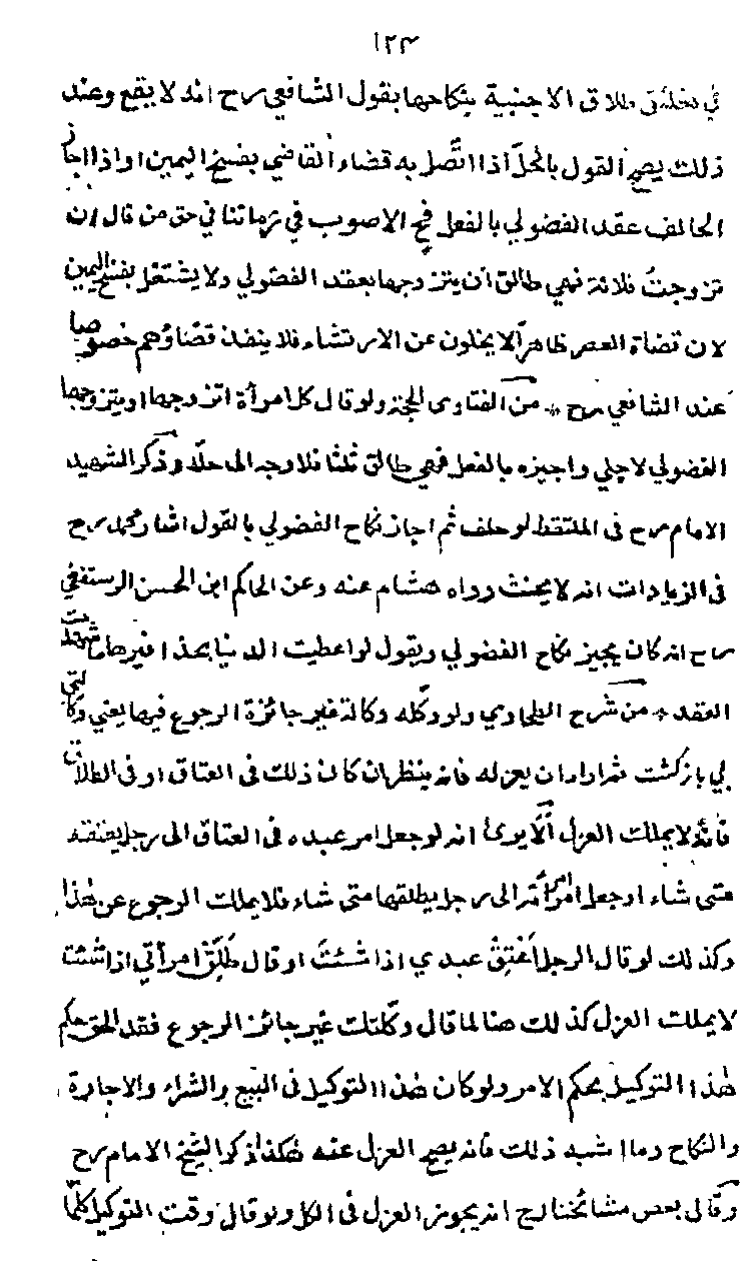 ١٢٣
في طلاق الاجنبية بنكاحها بقول الشافعي رح انه لا يقع وعند
ذلك يصح القول بالحل اذا اتّصل به قضاء القاضي بفسخ اليمين او اذا اجاز
الحالف عقد الفضولي بالفعل فح الاصوب في زماننا في حق من قال ان
تزوجتُ فلانة فهي طالق ان يتزوجها بعقد الفضولي ولا يشتغل بفسخ اليمين
لان قضاة العصر ظاهراً لا يخلون عن الارتشاء فلا ينفذ قضاؤهم خصوصا
عند الشافعي رح * من الفتاوى الحجة ولو قال كل امرأة اتزوجها او يتزوجها
الفضولي لاجلي واجيزه بالفعل فهي طالق ثلثا فلا وجه الى حلّه وذكر الشهيد
الامام رح فى الملتقط لو حلف ثم اجاز نكاح الفضولي بالقول اشار محمد رح
فى الزيادات انه لا يحنث رواه هشام عنه وعن الحاكم ابن الحسن الرستغفني
رح انه كان يجيز نكاح الفضولي ويقول لو اعطيت الدنيا بحذافيرها
العقد * من شرح الطحاوي ولو وكّله وكالة غير جائزة الرجوع فيها يعني
بي بازكشت ثم اراد ان يعزله فانه ينظر ان كان ذلك فى العتاق او فى الطلاق
فانّه لا يملك العزل ألا يرى انه لو جعل امر عبده فى العتاق الى رجل يعتقه
متى شاء او جعل امر امرأته الى رجل يطلقها متى شاء فلا يملك الرجوع عن هذا
وكذلك لو قال الرجل أعْتِقْ عبدي اذا شئتَ او قال طَلِّقْ امرأتي اذا شئت
لا يملك العزل كذلك هنا لما قال وكّلتك غير جائز الرجوع فقد الحق حكم
هذا التوكيل بحكم الامر ولو كان هذا التوكيل فى البيع والشراء والاجارة
والنكاح وما اشبه ذلك فانه يصح العزل عنه هكذا ذكر الشيخ الامام رح
وقال بعض مشائخنا رح انه يجوز العزل فى الكل ولو قال وقت التوكيل كلّما